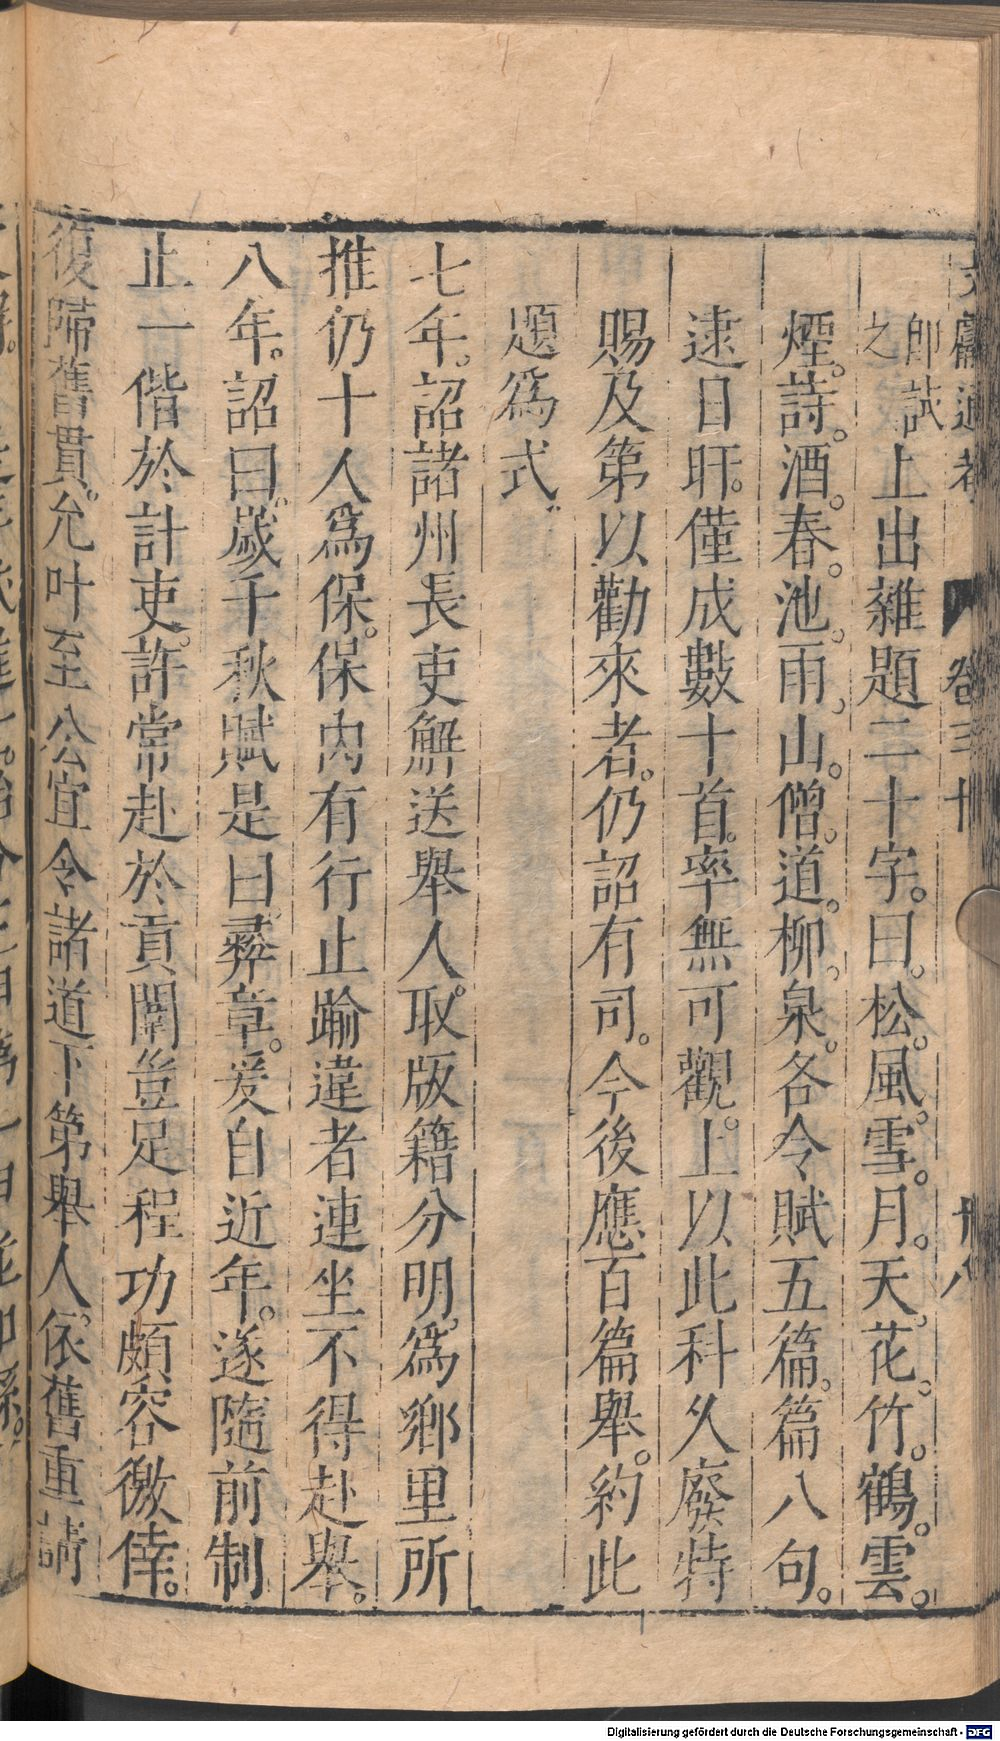 文獻通考 卷三十 卅八
即試之上出雜題二十字。曰。松。風。雪。月。天。花。竹。鶴。雲。
煙。詩。酒。春。池。雨。山。僧。道。柳。泉。各令賦五篇。篇八句。
逮日旰。僅成數十首。率無可觀。上以此科久廢特
賜及第以勸來者。仍詔有司。今後應百篇舉。約此
題爲式。
七年。詔諸州長吏解送舉人。取版籍分明。爲鄉里所
推仍十人爲保。保內有行止踰違者連坐不得赴舉。
八年。詔曰。歲千秋賦是曰彝章。爰自近年。遂隨前制
止一偕於計吏。許常赴於貢闈豈足程功頗容徼倖。
復歸舊貫。允叶至公宜令諸道下第舉人。依舊重請
Digitalisierung gefördert durch die Deutsche Forschungsgemeinschaft - DFG